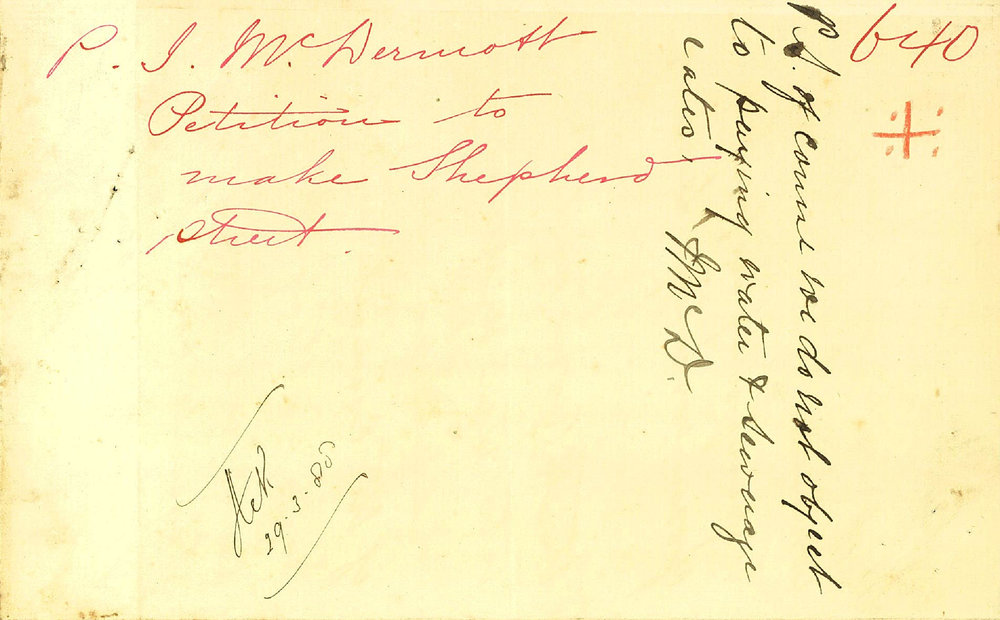 P. J. McDermott
Petition to
make Shepherd
street.
640
P.S. of course we do not object
to paying water & sewerage
rates.
McD.
29.3.